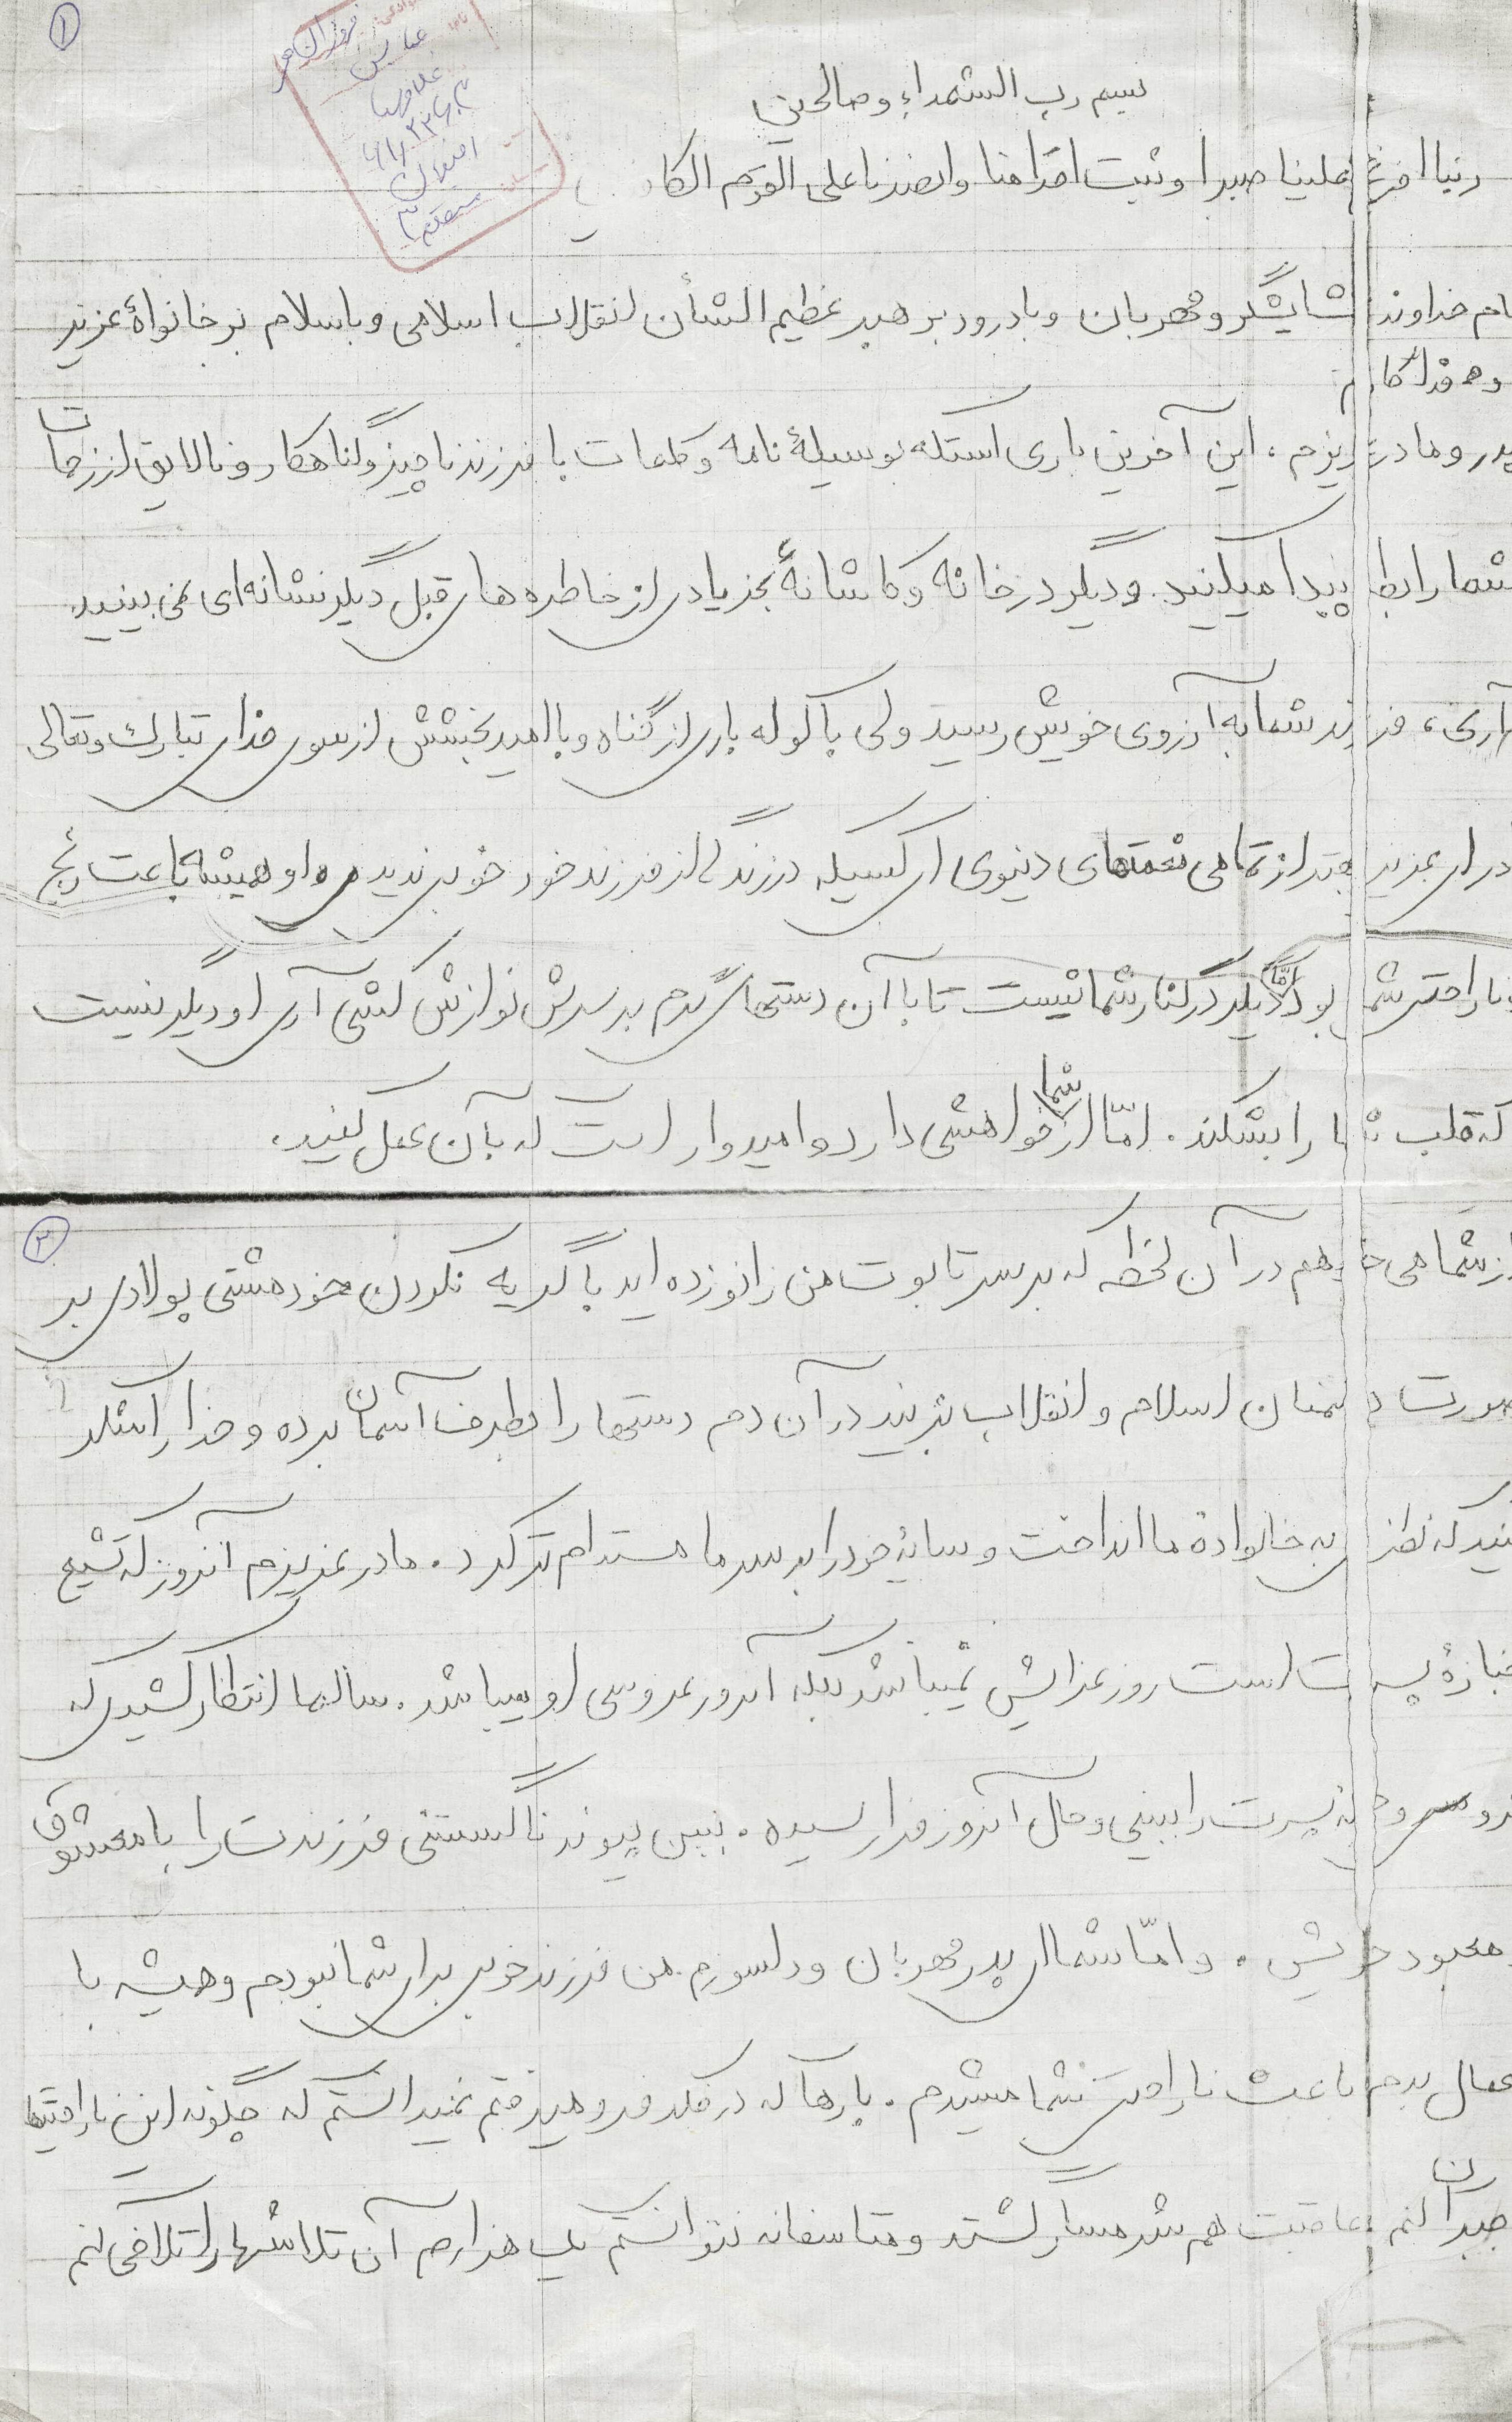 ۱
بسم رب الشهداء و صالحین
ربنا افرغ علینا صبرا و ثبت اقدامنا وانصرنا علی القوم الکا
نام خداوند شایشگر و مهربان و با درود بر رهبر عظیم الشأن انقلاب اسلامی و با سلام بر خانوادهٔ عزیز
و فداکارم
پدر و مادر عزیزم، این آخرین باری استکه بوسیلهٔ نامه و کلمات با فرزند ناچیز و گناهکار و نالایق از زحمات
شما رابطه پیدا میکنید. و دیگر در خانه و کاشانهٔ بجز یادی از خاطره های قبل دیگر نشانه ای نمی بینید.
آری، فرزند شما به آرزوی خویش رسید ولی با کوله باری از گناه و با امید بخشش از سوی خدای تبارک و تعالی
مادر ای عزیز بهتر از تمامی نعمتهای دنیوی ای کسیکه در زندگی از فرزند خود خوبی ندیدی و او همیشه باعث رنج
و ناراحتی شما بود اما دیگر در کنار شما نیست تا با آن دستهای گرم بر سرش نوازش کشی آری او دیگر نیست
که قلب شما را بشکند. امّا از شما خواهشی دارد و امیدوار است که بآن عمل کنید.
۲
از شما می خواهم در آن لحظه که بر سر تابوت من زانو زده اید با گریه نکردن خود مشتی پولادی بر
صورت دشمنان اسلام و انقلاب بزنید در آن دم دستها را بطرف آسمان برده و خدا را شکر
کنید که نظری به خانوادهٔ ما انداخت و سایهٔ خود را بر سر ما مستدام تر کرد. مادر عزیزم آنروز که تشیع
جنازهٔ پسرت است روز عزایش نمیباشد بلکه آنروز عروسی او میباشد. سالها انتظار کشیدی که
عروسی پسرت را ببینی و حال آنروز فرا رسیده. ببین پیوند ناگسستنی فرزندت را با معشوق
و معبود خویش. و امّا شما ای پدر مهربان و دلسوزم. من فرزند خوبی برای شما نبودم و همیشه با
اعمال بدم باعث ناراحتی شما میشدم. بارها که در فکر فرو میرفتم نمیدانستم که چگونه این ناراحتیها
جبران کنم عاقبت هم شرمسار گشتم و متاسفانه نتوانستم یک هزارم آن تلاشها را تلافی کنم